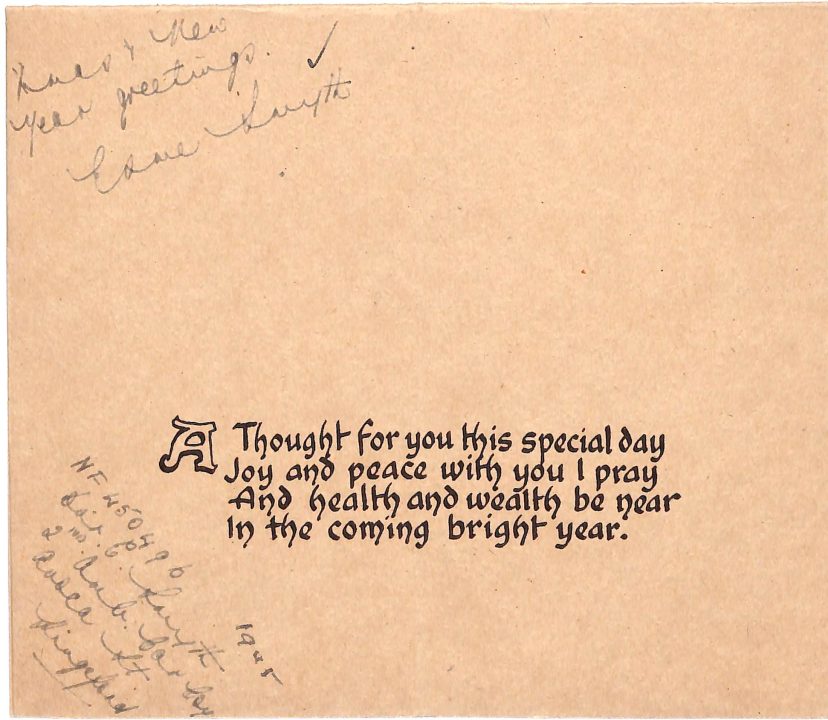 Xmas & New
Year greetings.
Esme Smyth
A Thought for you this special day
Joy and peace with you I pray
And health and wealth be near
In the coming bright year.
NF 450496
Smyth
2nd Amb.
St
1945